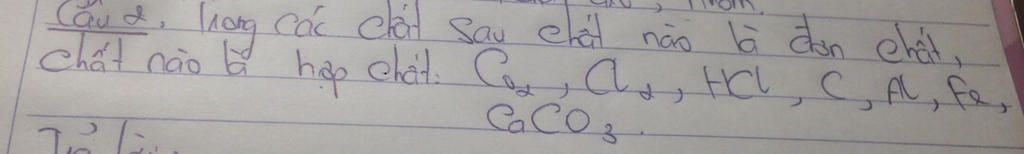 Câu 2, Trong các chất sau chất nào là đơn chất,
chất nào là hợp chất: CO₂, Cl₂, HCl, C, Al, Fe,
CaCO₃.